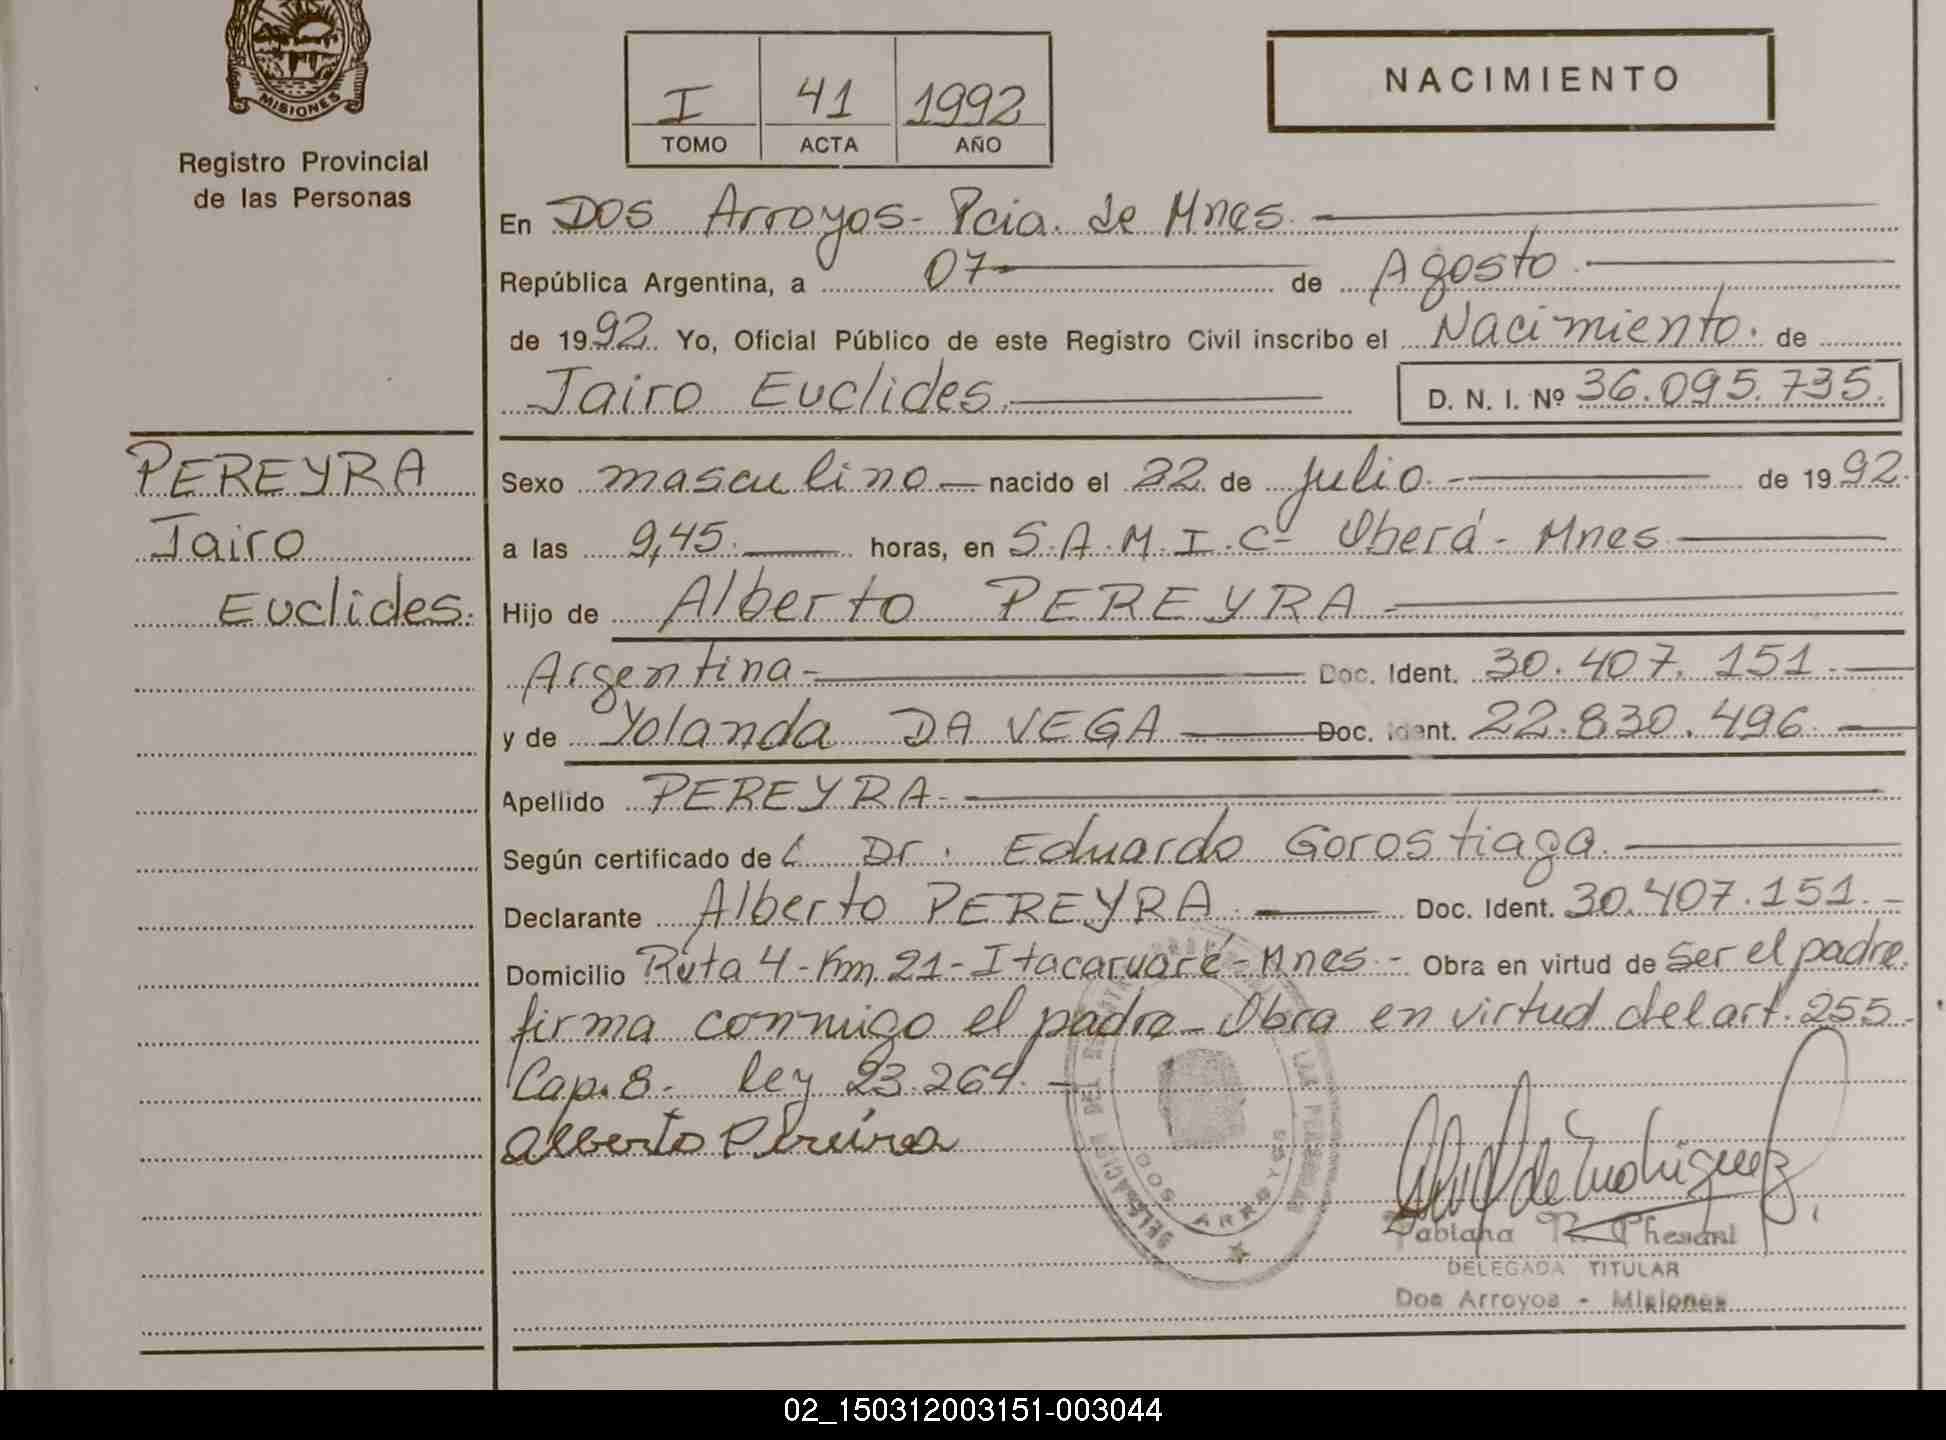 MISIONES
Registro Provincial
de las Personas
I 41 1992
TOMO ACTA AÑO
NACIMIENTO
En Dos Arroyos - Pcia. de Mnes.
República Argentina, a 07 de Agosto
de 1992. Yo, Oficial Público de este Registro Civil inscribo el Nacimiento. de
Jairo Euclides D. N. I. Nº 36.095.735.
PEREYRA
Jairo
Euclides.
Sexo masculino nacido el 22 de julio de 1992.
a las 9,45 horas, en S.A.M.I.C - Oberá - Mnes
Hijo de Alberto PEREYRA
Argentina Doc. Ident. 30.407.151
y de Yolanda DA VEGA Doc. Ident. 22.830.496
Apellido PEREYRA
Según certificado de Dr. Eduardo Gorostiaga
Declarante Alberto PEREYRA Doc. Ident. 30.407.151.
Domicilio Ruta 4 - Km 21 - Itacaruaré - Mnes - Obra en virtud de ser el padre.
firma conmigo el padre - Obra en virtud del art. 255
Cap. 8. ley 23.264.
Alberto Pereira
DOS ARROYOS
DELEGADA TITULAR
Dos Arroyos - Misiones
02_150312003151-003044